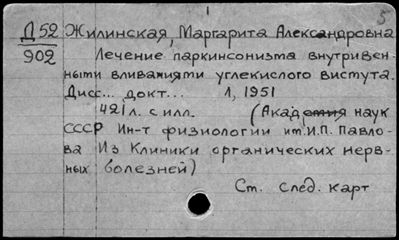 5
Д 52 Жилинская, Маргарита Александровна
902 Лечение паркинсонизма внутривен-
ными вливаниями углекислого висмута.
Дисс... докт... Л, 1951
421 л. с илл. (Академия наук
СССР Ин-т физиологии им. И.П. Павло-
ва Из Клиники органических нерв-
ных болезней)
Ст. след. карт